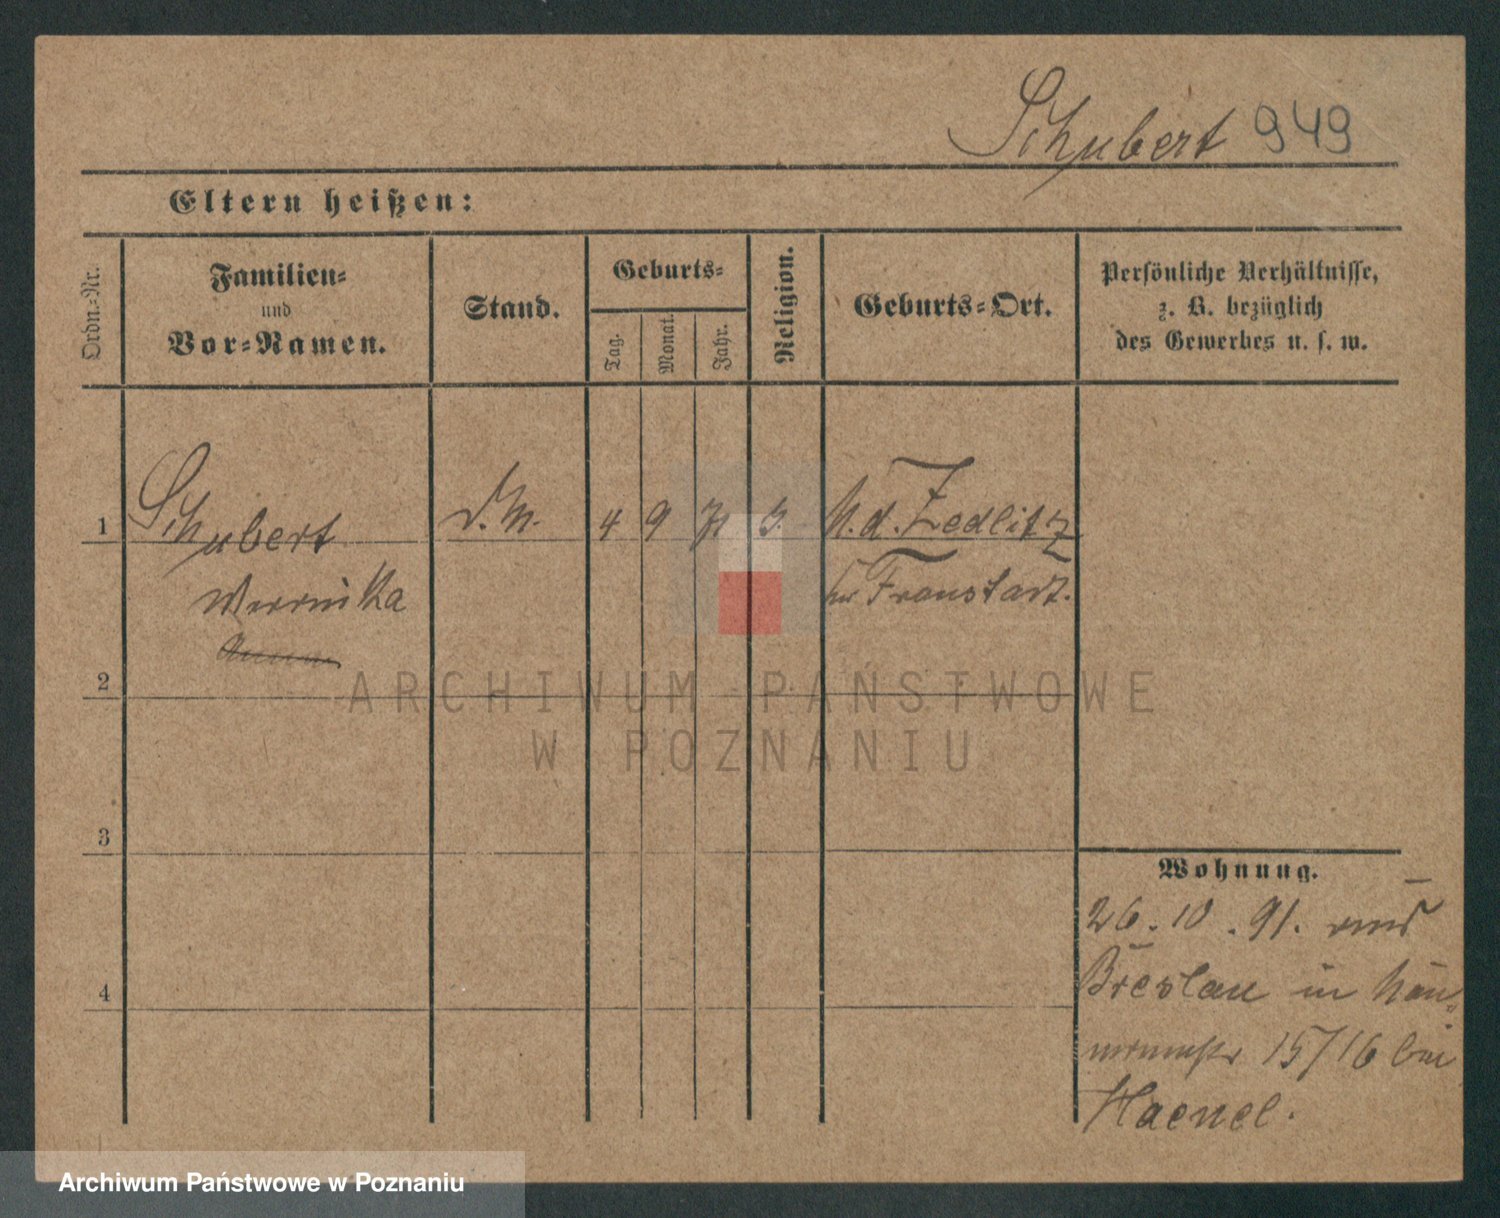 Schubert 949
Eltern heißen:
Ordn.-Nr.
Familien-
und
Vor-Namen.
Stand.
Geburts-
Tag.
Monat.
Jahr.
Religion.
Geburts-Ort.
Persönliche Verhältnisse,
z. B. bezüglich
des Gewerbes u. s. w.
1
Schubert
d. M.
4
9
71
N. d. Zedlitz
Fraustadt.
2
3
4
Wohnung.
26. 10. 91. aus
Breslau in
15/16 bei
Haenel.
ARCHIWUM PAŃSTWOWE
W POZNANIU
Archiwum Państwowe w Poznaniu